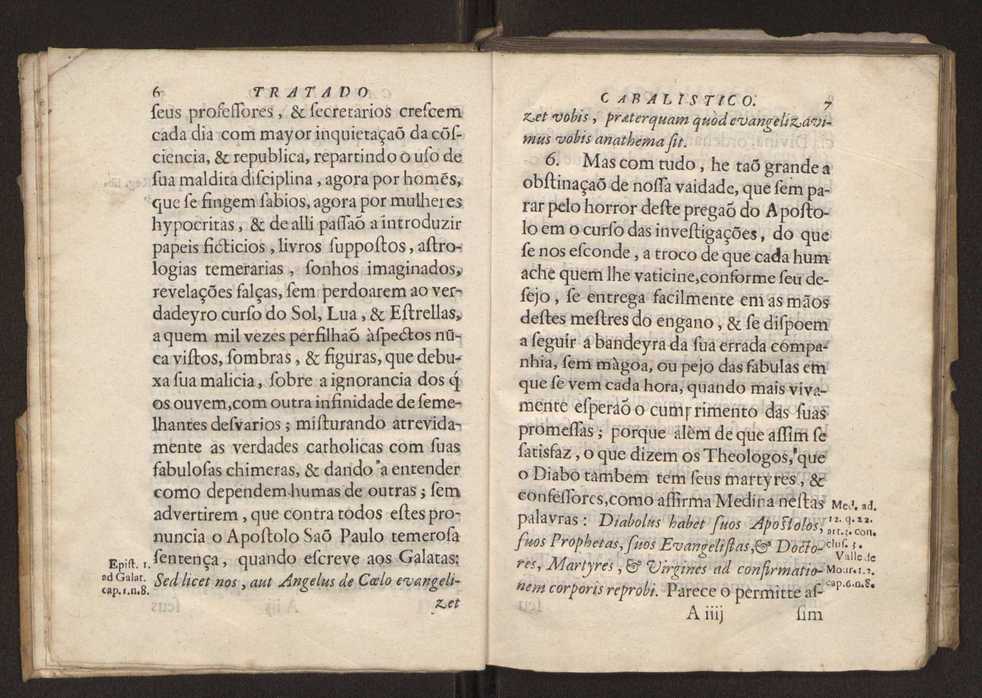 6 TRATADO
ſeus profeſſores, & ſecretarios creſcem
cada dia com mayor inquietaçaõ da cõſ-
ciencia, & republica, repartindo o uſo de
ſua maldita diſciplina, agora por homẽs,
que ſe fingem ſabios, agora por mulheres
hypocritas, & de alli paſſaõ a introduzir
papeis ficticios, livros ſuppoſtos, aſtro-
logias temerarias, ſonhos imaginados,
revelações falças, ſem perdoarem ao ver-
dadeyro curſo do Sol, Lua, & Eſtrellas,
a quem mil vezes perfilhaõ àſpectos nũ-
ca viſtos, ſombras, & figuras, que debu-
xa ſua malicia, ſobre a ignorancia dos q́
os ouvem, com outra infinidade de ſeme-
lhantes deſvarios; miſturando atrevida-
mente as verdades catholicas com ſuas
fabuloſas chimeras, & dando a entender
como dependem humas de outras; ſem
advertirem, que contra todos eſtes pro-
nuncia o Apoſtolo Saõ Paulo temeroſa
ſentença, quando eſcreve aos Galatas:
Sed licet nos, aut Angelus de Cœlo evangeli-
zet
Epiſt. 1.
ad Galat.
cap. 1. n. 8.
CABALISTICO. 7
zet vobis, præterquam quòd evangelizavi-
mus vobis anathema ſit.
6. Mas com tudo, he taõ grande a
obſtinaçaõ de noſſa vaidade, que ſem pa-
rar pelo horror deſte pregaõ do Apoſto-
lo em o curſo das inveſtigações, do que
ſe nos eſconde, a troco de que cada hum
ache quem lhe vaticine, conforme ſeu de-
ſejo, ſe entrega facilmente em as mãos
deſtes meſtres do engano, & ſe diſpoem
a ſeguir a bandeyra da ſua errada compa-
nhia, ſem màgoa, ou pejo das fabulas em
que ſe vem cada hora, quando mais viva-
mente eſperaõ o cumprimento das ſuas
promeſſas; porque alèm de que aſſim ſe
ſatisfaz, o que dizem os Theologos, que
o Diabo tambem tem ſeus martyres, &
confeſſores, como affirma Medina neſtas
palavras: Diabolus habet ſuos Apoſtolos,
ſuos Prophetas, ſuos Evangeliſtas, & Docto-
res, Martyres, & Virgines ad confirmatio-
nem corporis reprobi. Parece o permitte aſ-
A iiij ſim
Med. ad.
12. q. 22.
art. 1. con.
cluſ. 3.
Valle de
Mour. 1. 2.
cap. 6. n. 8.